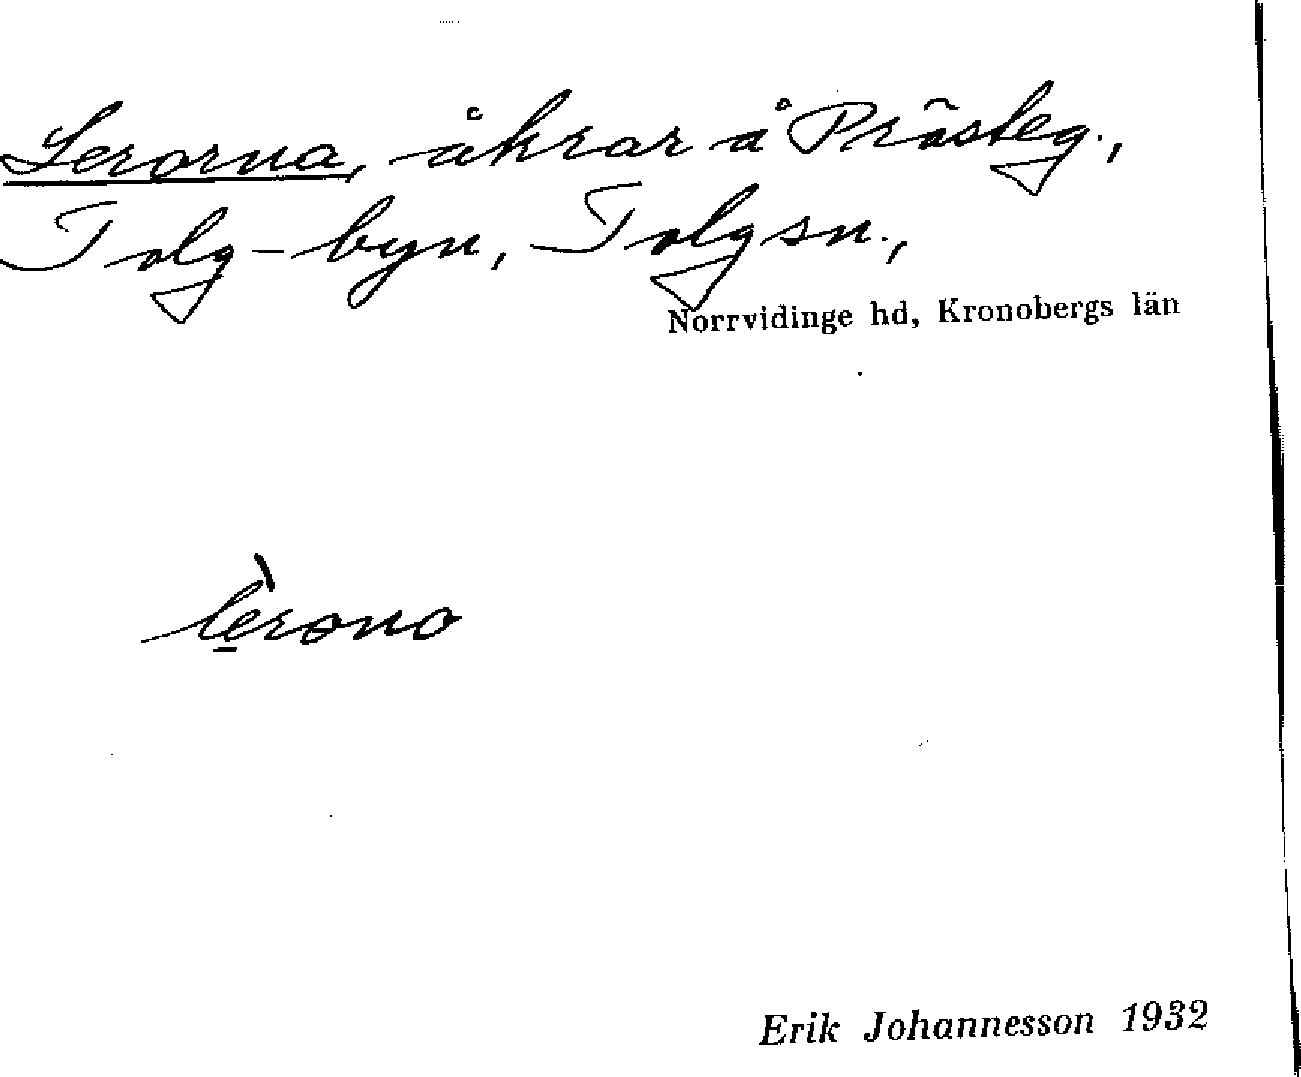 Lerorna, åkrar å Prästeg.,
Tolg-byn, Tolg sn.,
Norrvidinge hd, Kronobergs län
lè̱rono
Erik Johannesson 1932